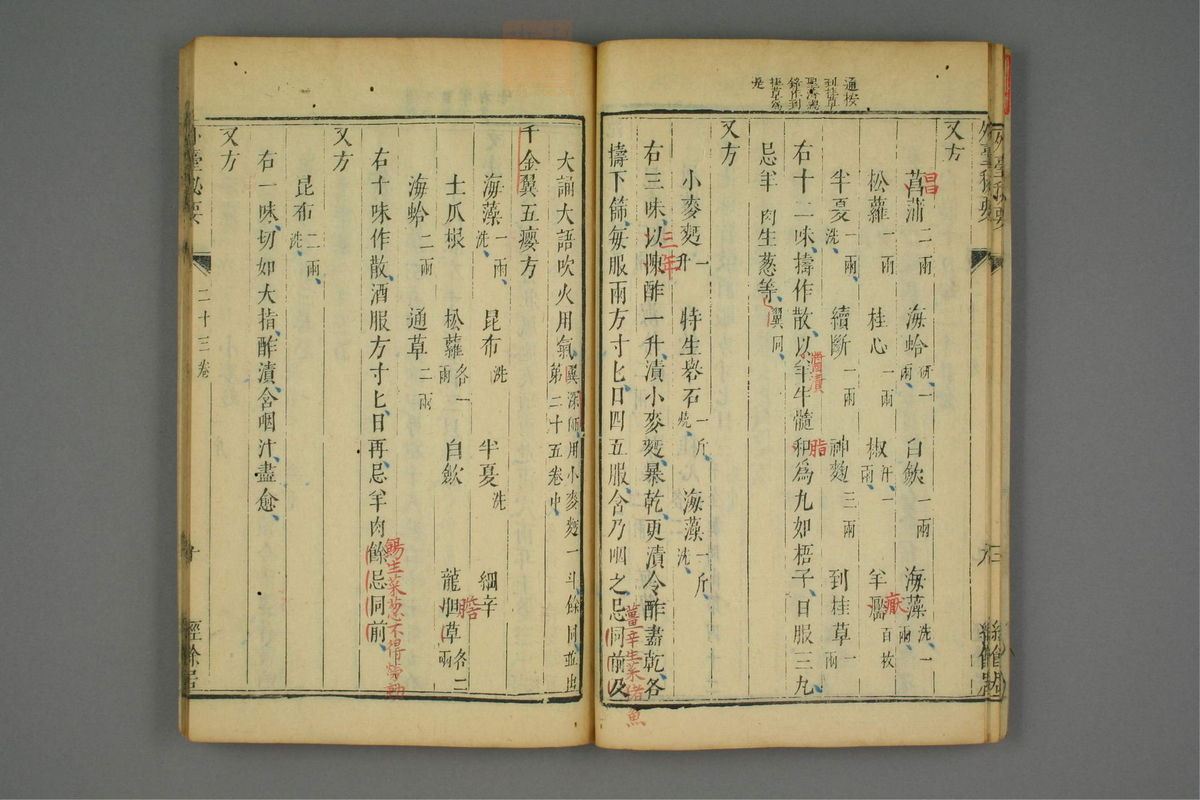 通按
到挂草
聖濟總
錄作到
挂草爲
是
又方
菖蒲二兩 海蛤研一兩 白斂一兩 海藻洗一兩
昌
松蘿一兩 桂心一兩 椒汗一兩 羊靨百枚
半夏洗一兩 續斷一兩 神麴三兩 到桂草一兩
右十二味擣作散以羊牛髓和爲丸如梧子日服三丸
脂
忌羊肉生葱等翼同
又方
小麥麪一升 特生礜石一斤燒 海藻一斤洗
右三味以陳酢一升漬小麥麪暴乾更漬令酢盡乾各
三年
擣下篩每服兩方寸匕日四五服含乃咽之忌同前及
薑辛生菜猪魚
大誦大語吹火用氣翼深師用小麥麪一斗餘同並出第二十五卷中
千金翼五癭方
海藻一兩洗 昆布洗 半夏洗 細辛
土瓜根 松蘿各一兩 白斂 龍胆草各二兩
海蛤二兩 通草二兩
右十味作散酒服方寸匕日再忌羊肉餘忌同前
餳生菜葱不得勞動
又方
昆布二兩洗
右一味切如大指酢漬含咽汁盡愈
又方
外臺秘要
二十三卷
十
經餘居